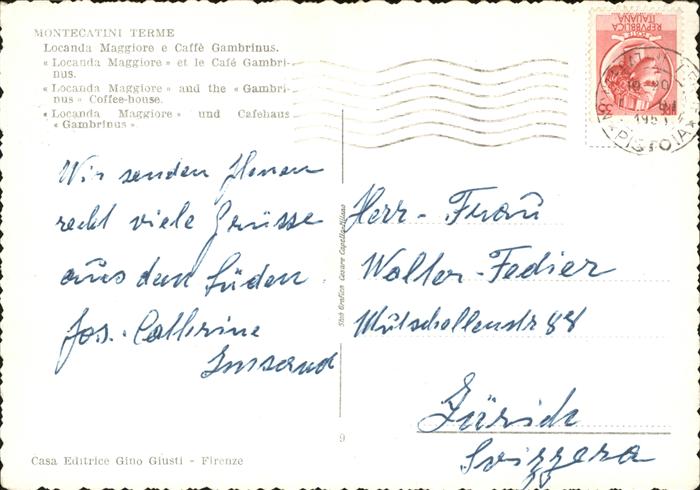 MONTECATINI TERME
Locanda Maggiore e Caffè Gambrinus.
« Locanda Maggiore » et le Café Gambri-
nus.
« Locanda Maggiore » and the « Gambri-
nus » Coffee-house.
« Locanda Maggiore » und Cafehaus
« Gambrinus ».
Wir senden Ihnen
recht viele Grüsse
aus dem Süden
Jos. Catherine
Casa Editrice Gino Giusti - Firenze
Stab Grafico Cesare Capello-Milano
9
REPVBBLICA
ITALIANA
POSTE
PISTOIA
Herr - Frau
Walter - Fedier
Mutschellenstr 88
Zürich
Svizzera